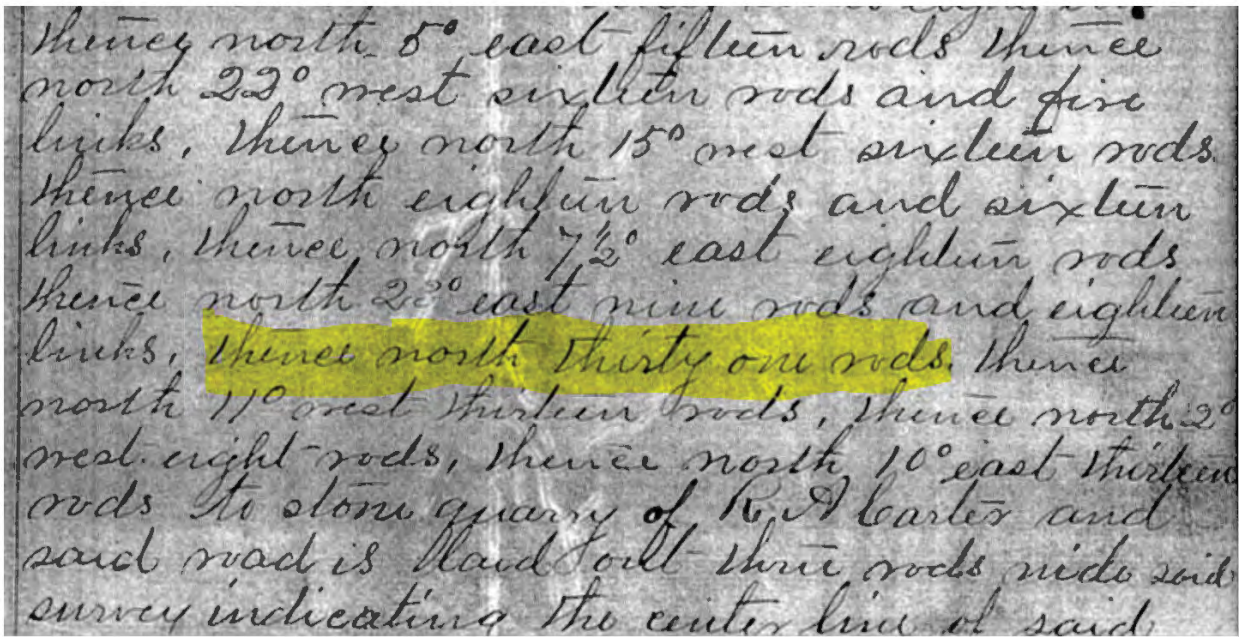 thence north 5° east fifteen rods thence
north 22° west sixteen rods and five
links, thence north 15° west sixteen rods.
thence north eighteen rods and sixteen
links, thence north 7½° east eighteen rods
thence north 22° east nine rods and eighteen
links, thence north thirty one rods. thence
north 11° west thirteen rods, thence north 2°
west eight rods, thence north 10° east thirteen
rods to stone quarry of R A Carter and
said road is laid out three rods wide said
survey indicating the center line of said